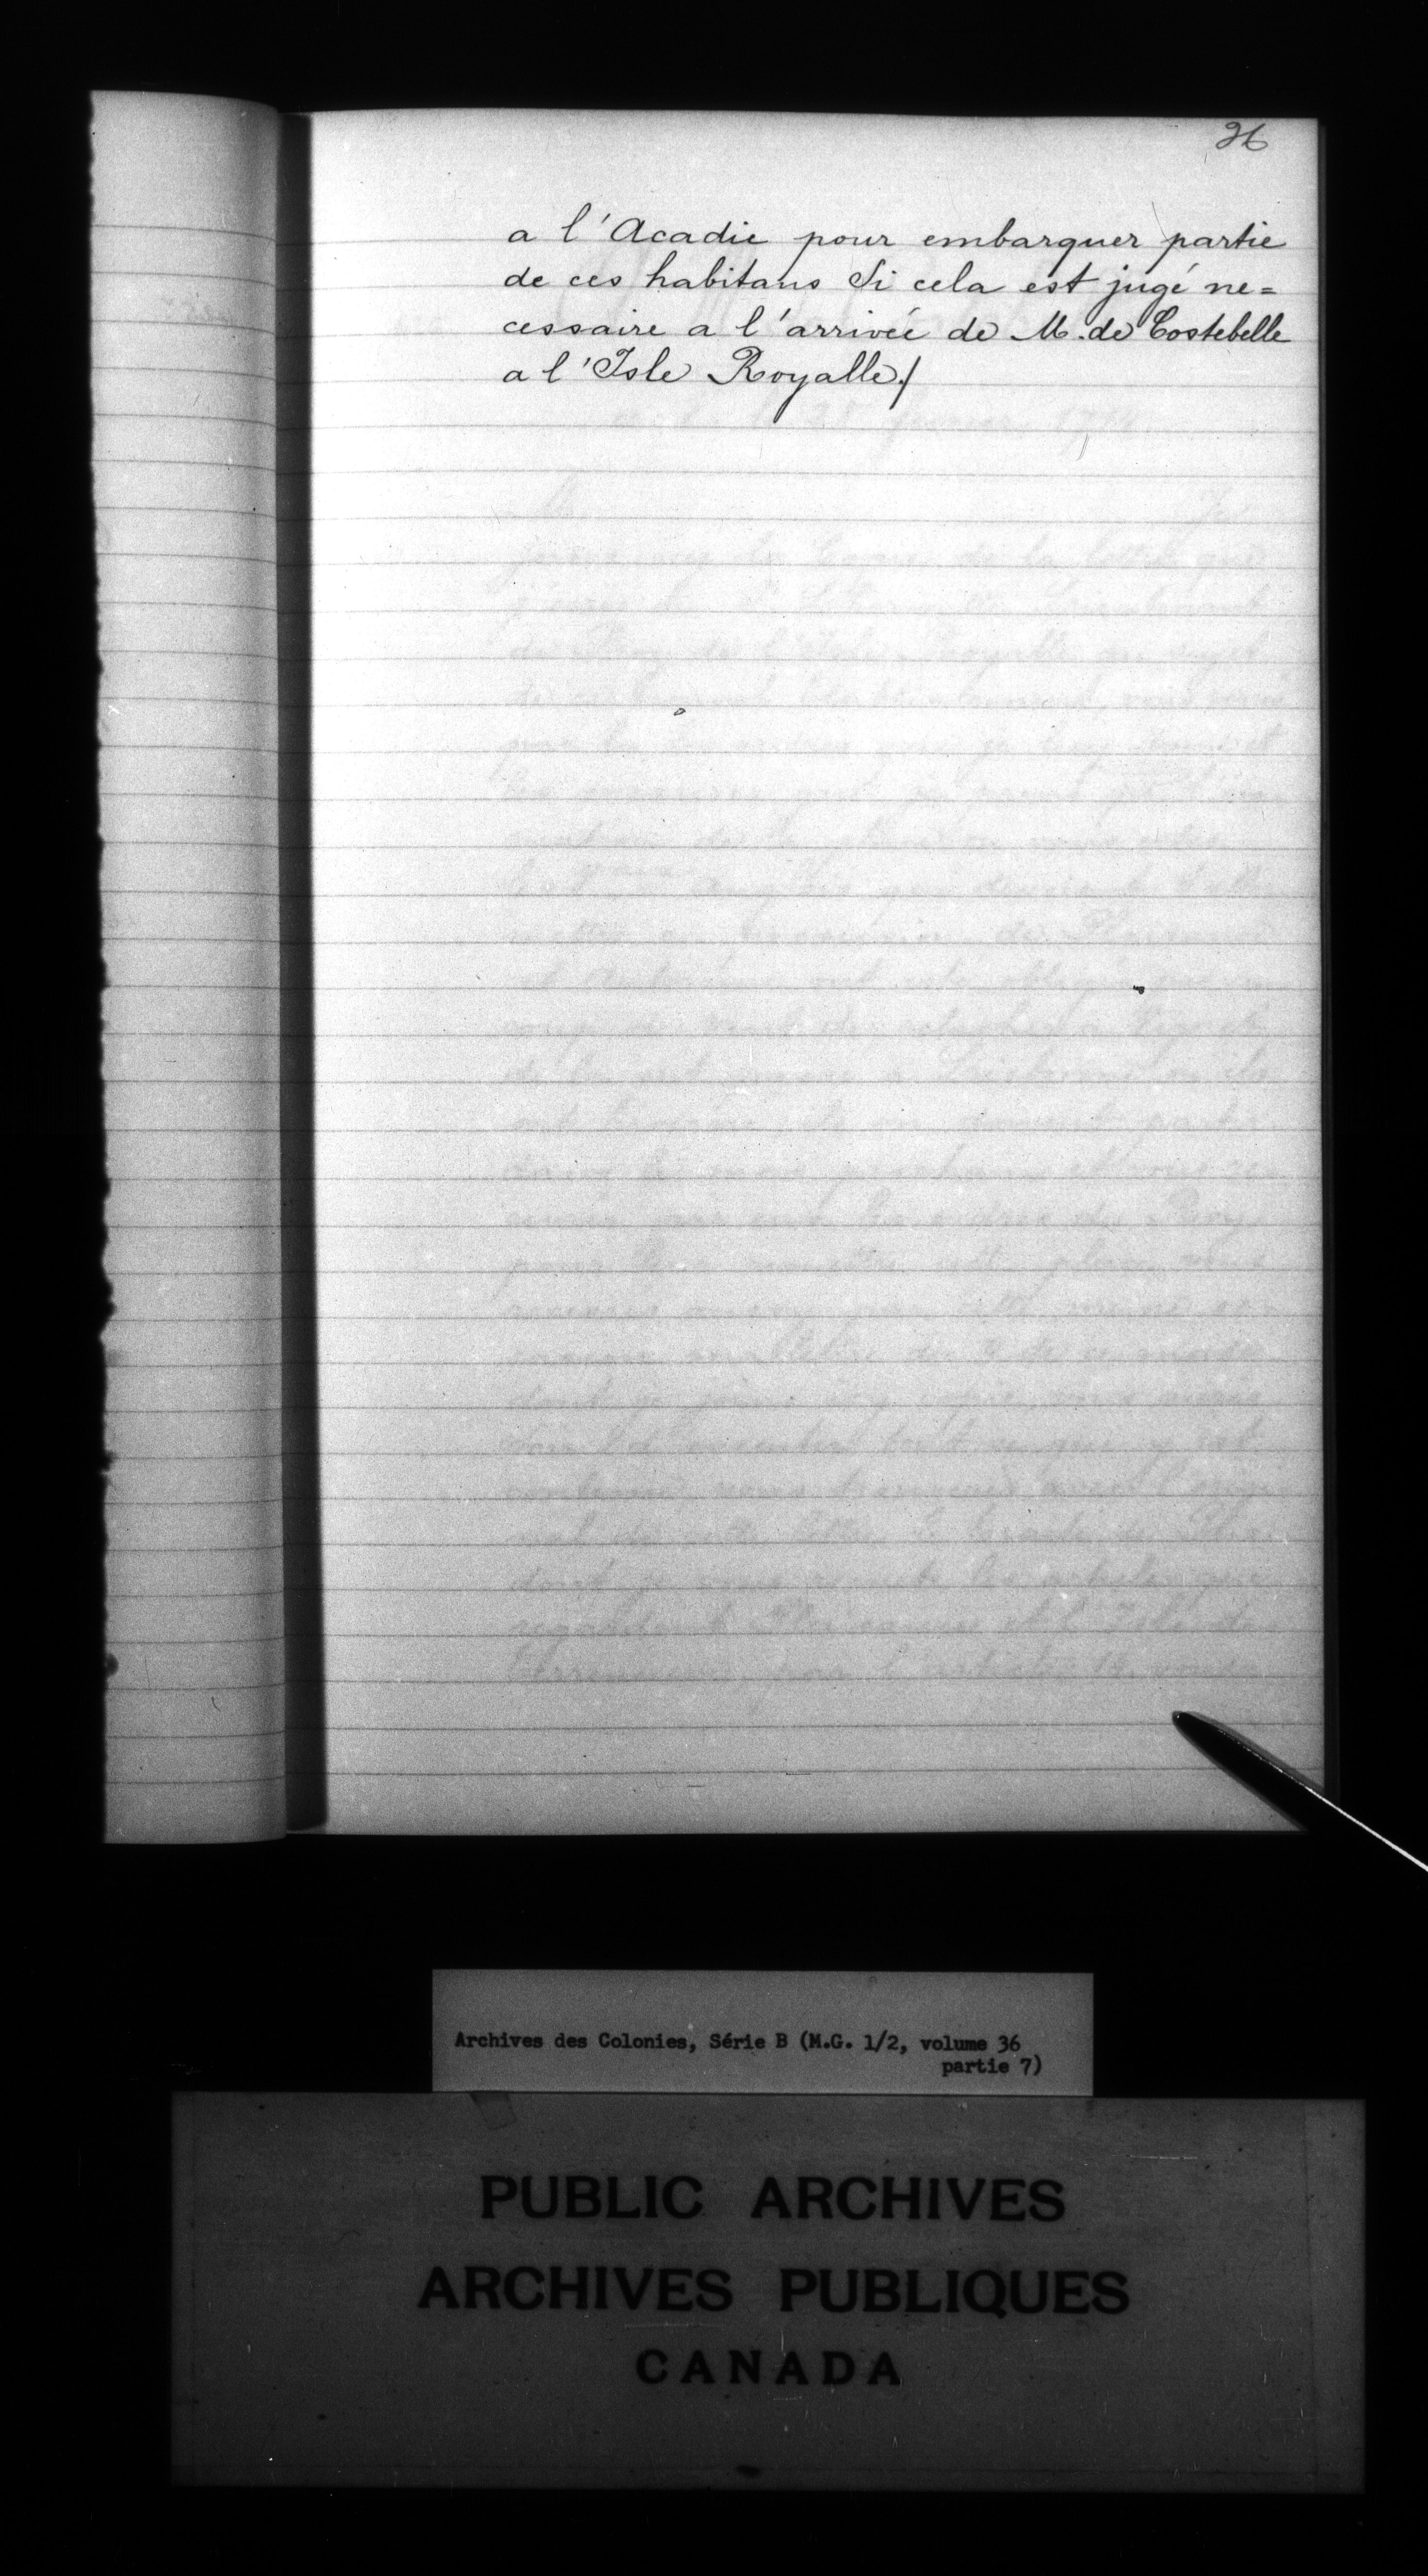 26
a l'Acadie pour embarquer partie
de ces habitans Si cela est jugé ne=
cessaire a l'arrivée de M. de Costebelle
a l'Isle Royalle./
Archives des Colonies, Série B (M.G. 1/2, volume 36
partie 7)
PUBLIC ARCHIVES
ARCHIVES PUBLIQUES
CANADA